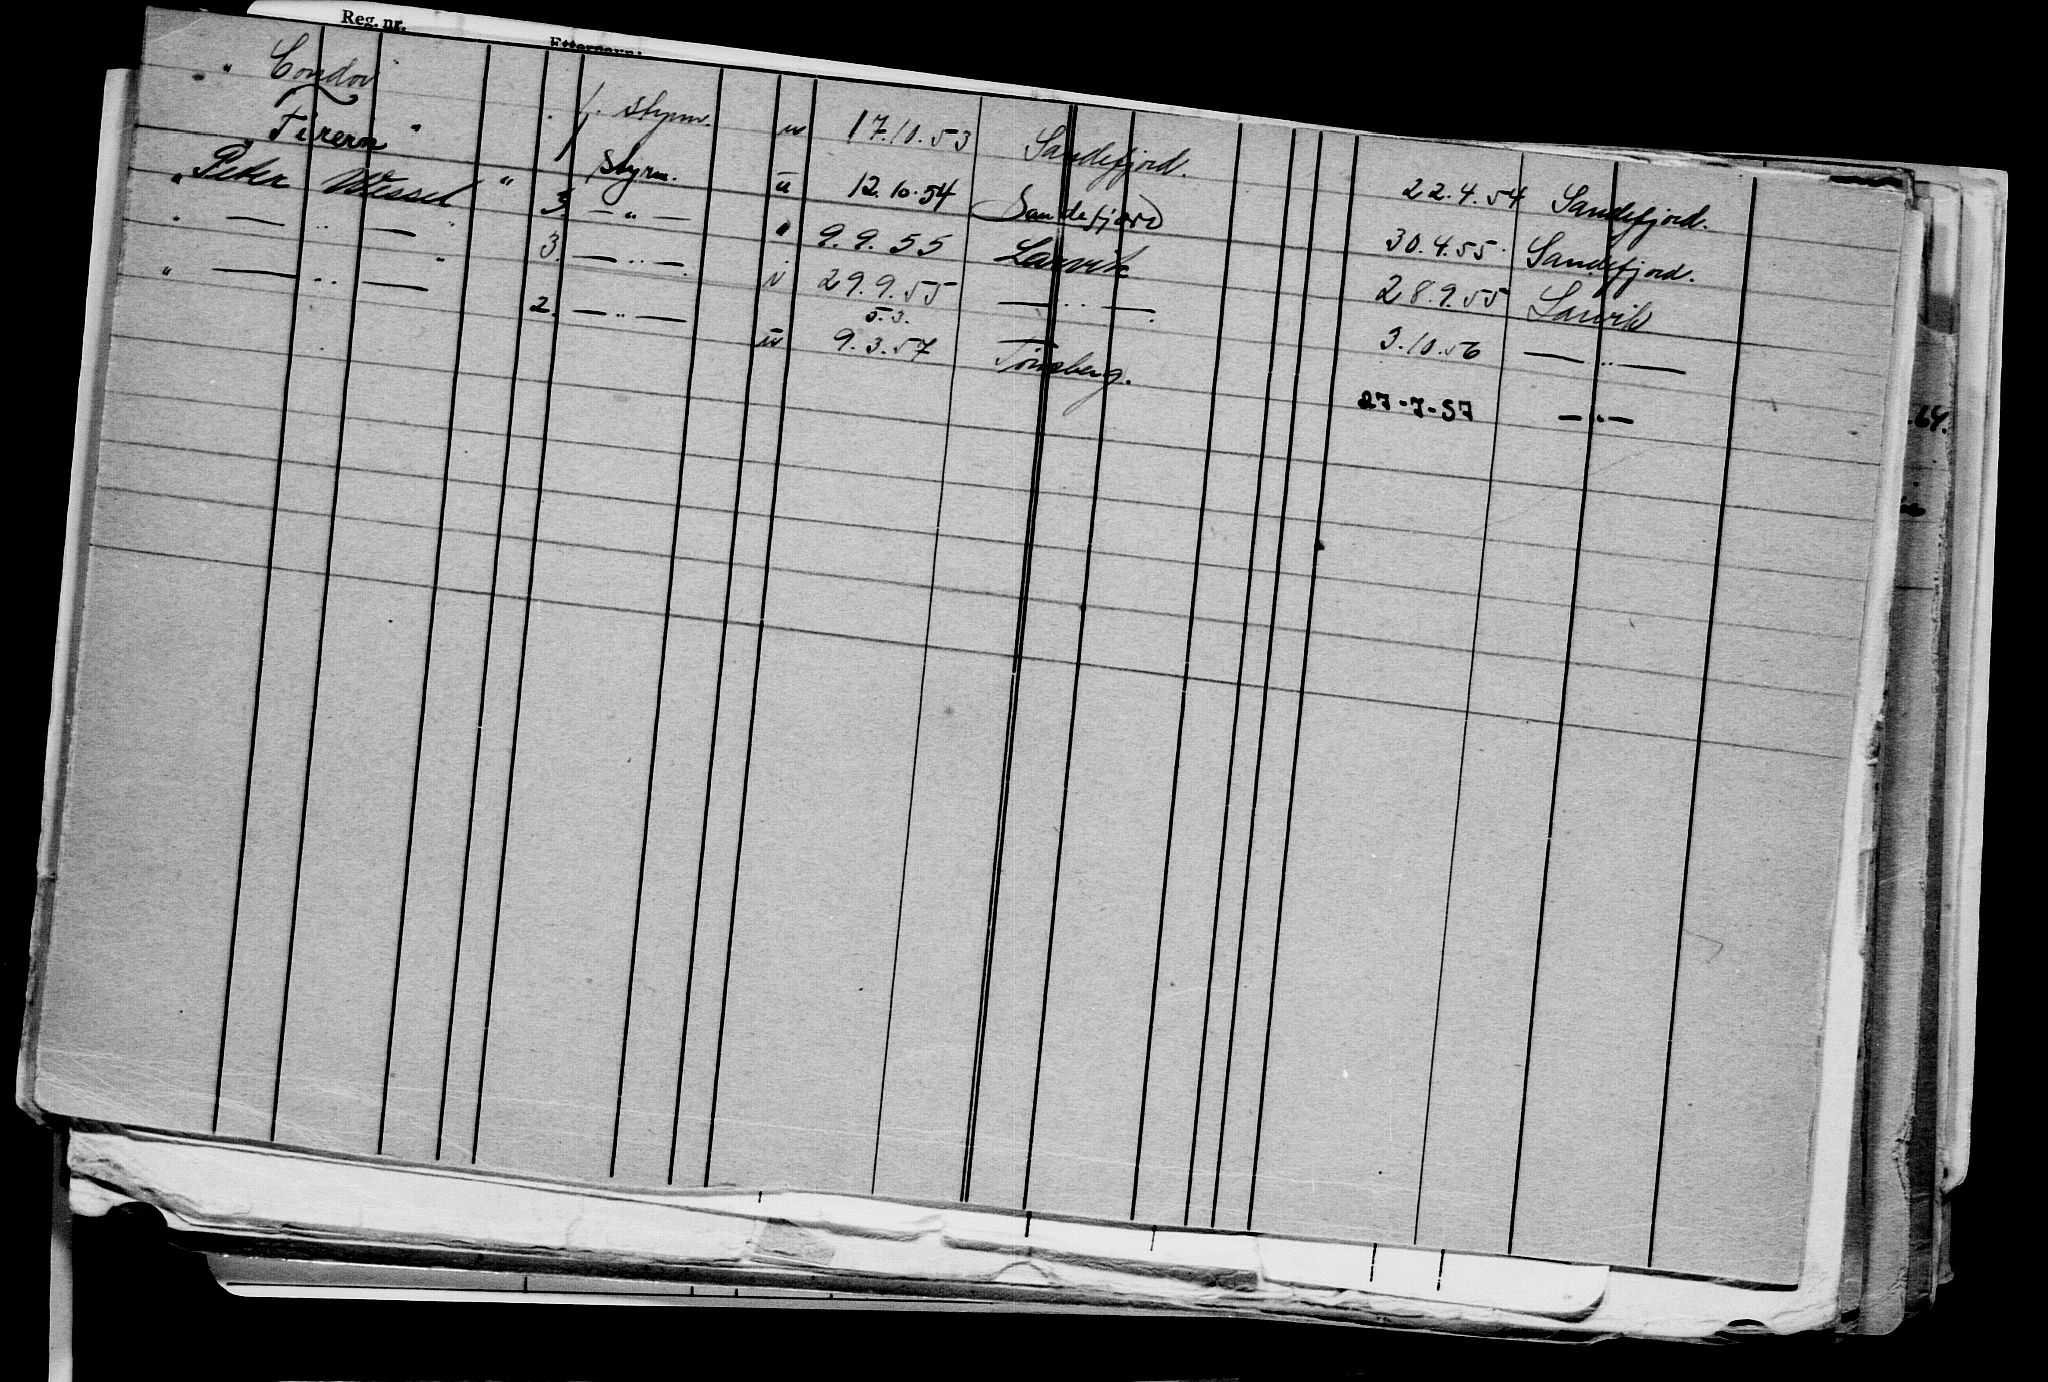 Reg. nr. Etternavn:
" Condor " 1. styrm. u 17.10.53 Sandefjord. 22.4.54 Sandefjord.
" Firern " styrm. u 12.10.54 Sandefjord 30.4.55 Sandefjord.
" Peter Wessel " 3. — " — " 9.9.55 Larvik 28.9.55 Larvik
" — " — " 3. — " — u 29.9.55 — " — 3.10.56 — " —
" — " — 2. — " — u 5.3. 9.3.57 Tønsberg. 27-7-57 — " —
.64.